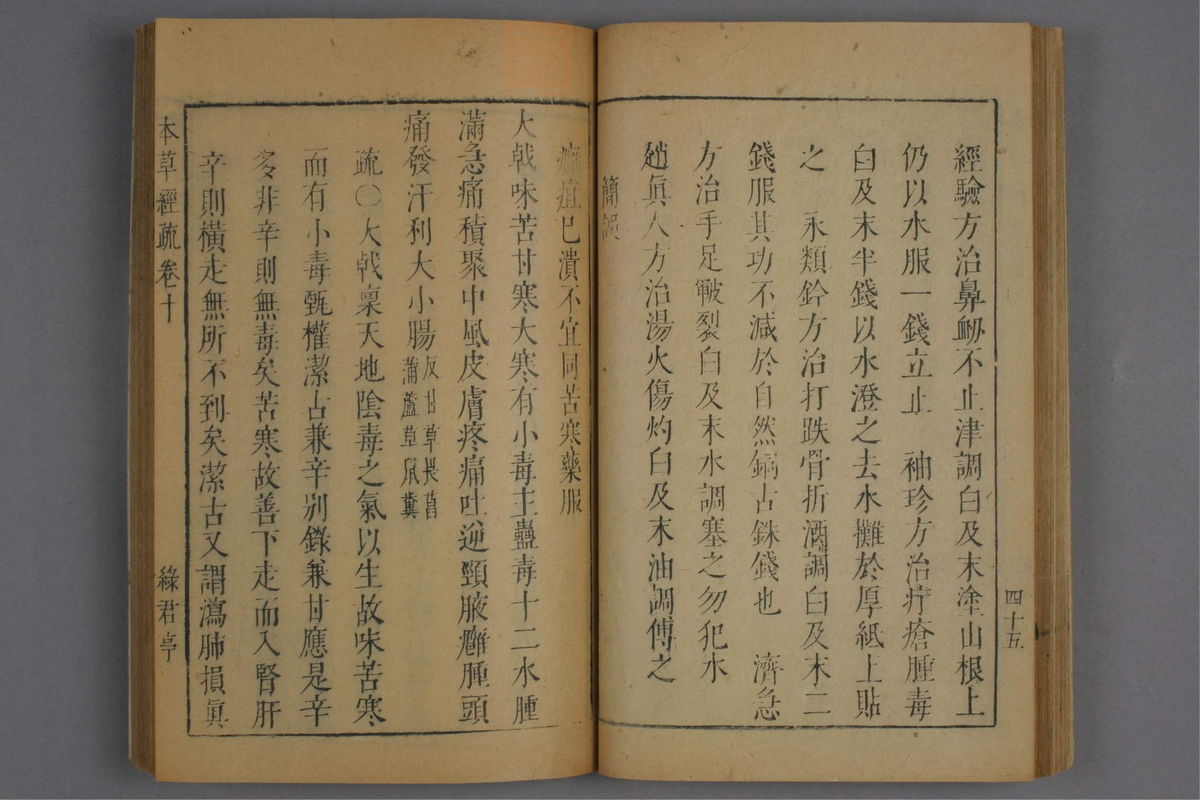 四十五
經驗方治鼻衂不止津調白及末塗山根上
仍以水服一錢立止　袖珍方治疔瘡腫毒
白及末半錢以水澄之去水攤於厚紙上貼
之　永類鈐方治打跌骨折酒調白及末二
錢服其功不減於自然銅古銖錢也　濟急
方治手足皸裂白及末水調塞之勿犯水
趙眞人方治湯火傷灼白及末油調傅之
簡誤
癰疽已潰不宜同苦寒藥服
大戟味苦甘寒大寒有小毒主蠱毒十二水腫
滿急痛積聚中風皮膚疼痛吐逆頸腋癰腫頭
痛發汗利大小腸反甘草畏菖蒲蘆草鼠糞
疏〇大戟稟天地陰毒之氣以生故味苦寒
而有小毒甄權潔古兼辛别錄兼甘應是辛
多非辛則無毒矣苦寒故善下走而入腎肝
辛則橫走無所不到矣潔古又謂瀉肺損眞
本草經疏卷十
綠君亭